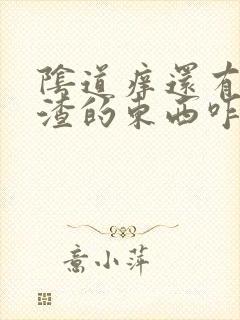 陰道痒還有
渣的東西咋
喬小萍